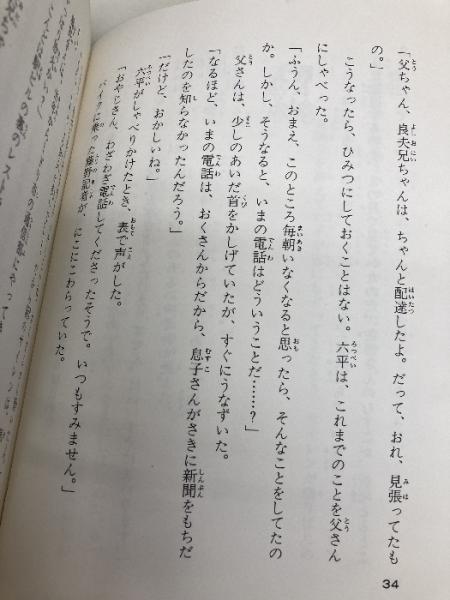 「父ちゃん、良夫兄ちゃんは、ちゃんと配達したよ。だって、おれ、見張ってたも
の。」
こうなったら、ひみつにしておくことはない。六平は、これまでのことを父さん
にしゃべった。
「ふうん、おまえ、このところ毎朝いなくなると思ったら、そんなことをしてたの
か。しかし、そうなると、いまの電話はどういうことだ……?」
父さんは、少しのあいだ首をかしげていたが、すぐにうなずいた。
「なるほど、いまの電話は、おくさんからだから、息子さんがさきに新聞をもちだ
したのを知らなかったんだろう。」
「だけど、おかしいね。」
六平がしゃべりかけたとき、表で声がした。
「おやじさん、わざわざ電話してくださったそうで。いつもすみません。」
バイクに乗った藤野記者が、にこにこわらっていた。
34